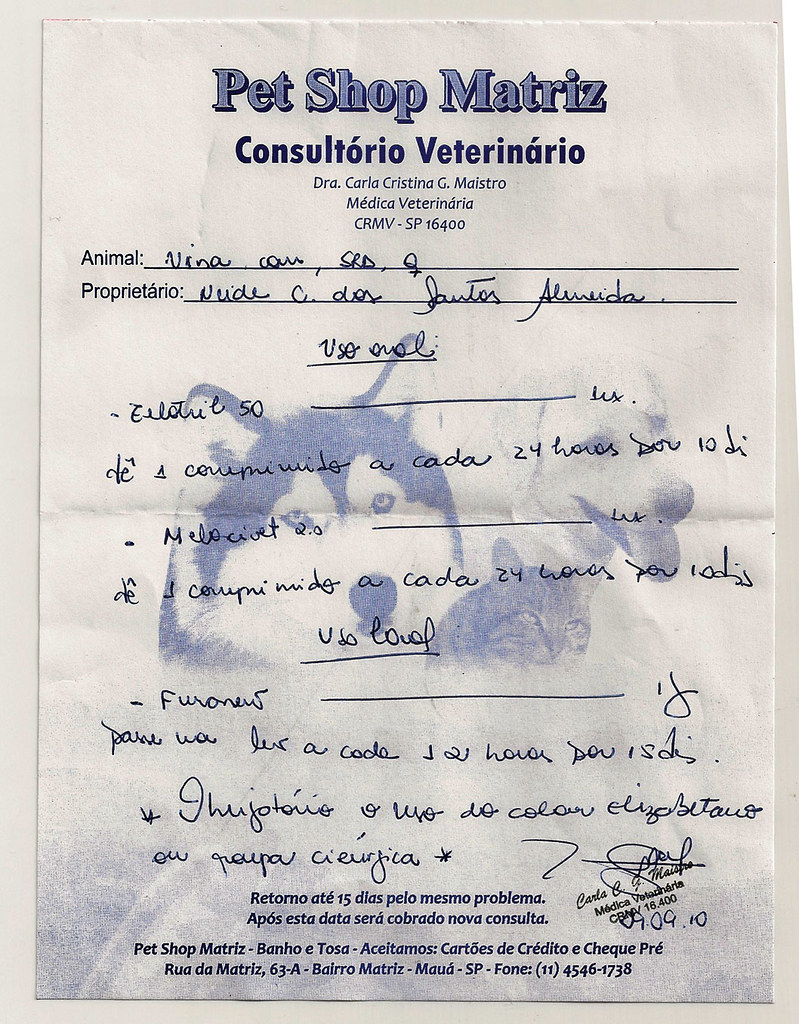 Pet Shop Matriz
Consultório Veterinário
Dra. Carla Cristina G. Maistro
Médica Veterinária
CRMV - SP 16400
Animal: Nina can, SRD, ♀
Proprietário: Neide C. dos Santos Almeida.
Uso oral:
- Zelotril 50 cx.
dê 1 comprimido a cada 24 horas por 10 di
- Melocivet 2.0 cx.
dê 1 comprimido a cada 24 horas por 10 dis
Uso local
- Furanew
passe na a cada 12 horas por 15 dis.
* o uso do colar elizabetano
ou roupa cirúrgica *
Carla C. G. Maistro
Médica Veterinária
CRMV 16.400
09.09.10
Retorno até 15 dias pelo mesmo problema.
Após esta data será cobrado nova consulta.
Pet Shop Matriz - Banho e Tosa - Aceitamos: Cartões de Crédito e Cheque Pré
Rua da Matriz, 63-A - Bairro Matriz - Mauá - SP - Fone: (11) 4546-1738